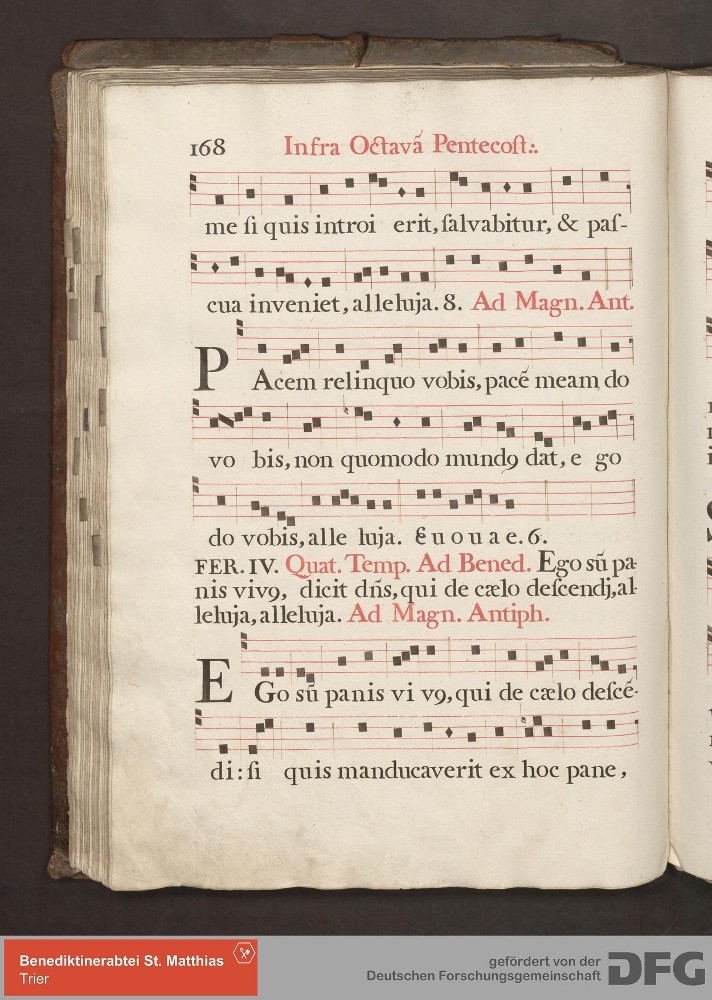 168 Infra Octavā Pentecoſt.:.
me ſi quis introi erit, ſalvabitur, & paſ-
cua inveniet, alleluja. 8. Ad Magn. Ant.
PAcem relinquo vobis, pacē meam do
vo bis, non quomodo mundꝯ dat, e go
do vobis, alle luja. Euouae. 6.
FER. IV. Quat. Temp. Ad Bened. Ego sū pa-
nis vivꝯ, dicit dn̄s, qui de cælo deſcendj, al-
leluja, alleluja. Ad Magn. Antiph.
EGo sū panis vi vꝯ, qui de cælo deſcē-
di: ſi quis manducaverit ex hoc pane,
Benediktinerabtei St. Matthias
Trier
gefördert von der
Deutschen Forschungsgemeinschaft DFG